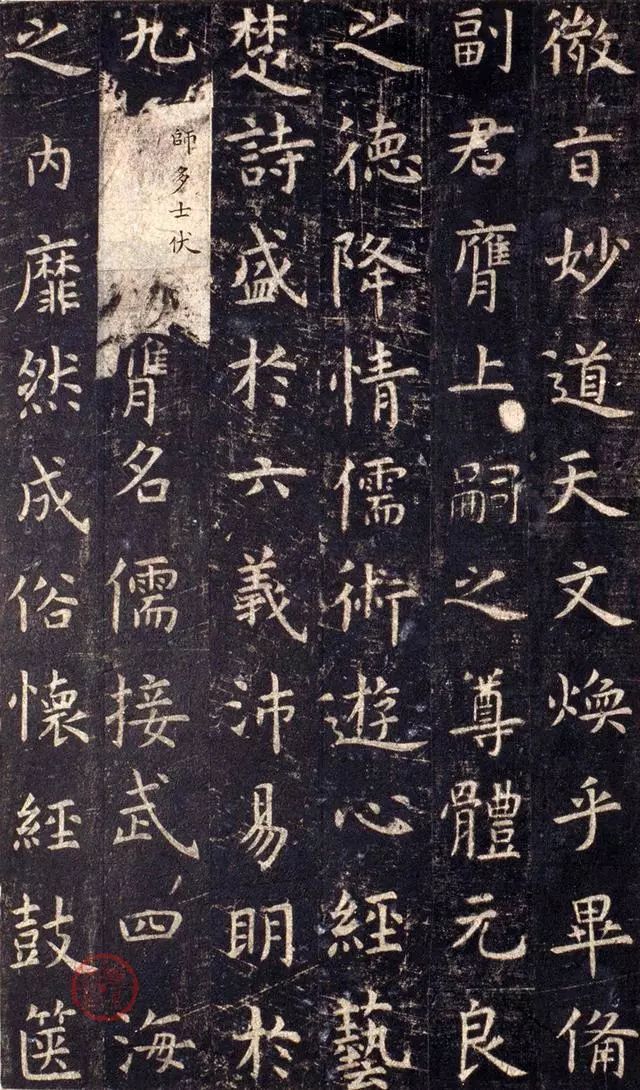 微旨妙道天文煥乎畢備
副君膺上嗣之尊體元良
之德降情儒術遊心經藝
楚詩盛於六義沛易明於
九師多士伏膺名儒接武四海
之內靡然成俗懷經鼓篋